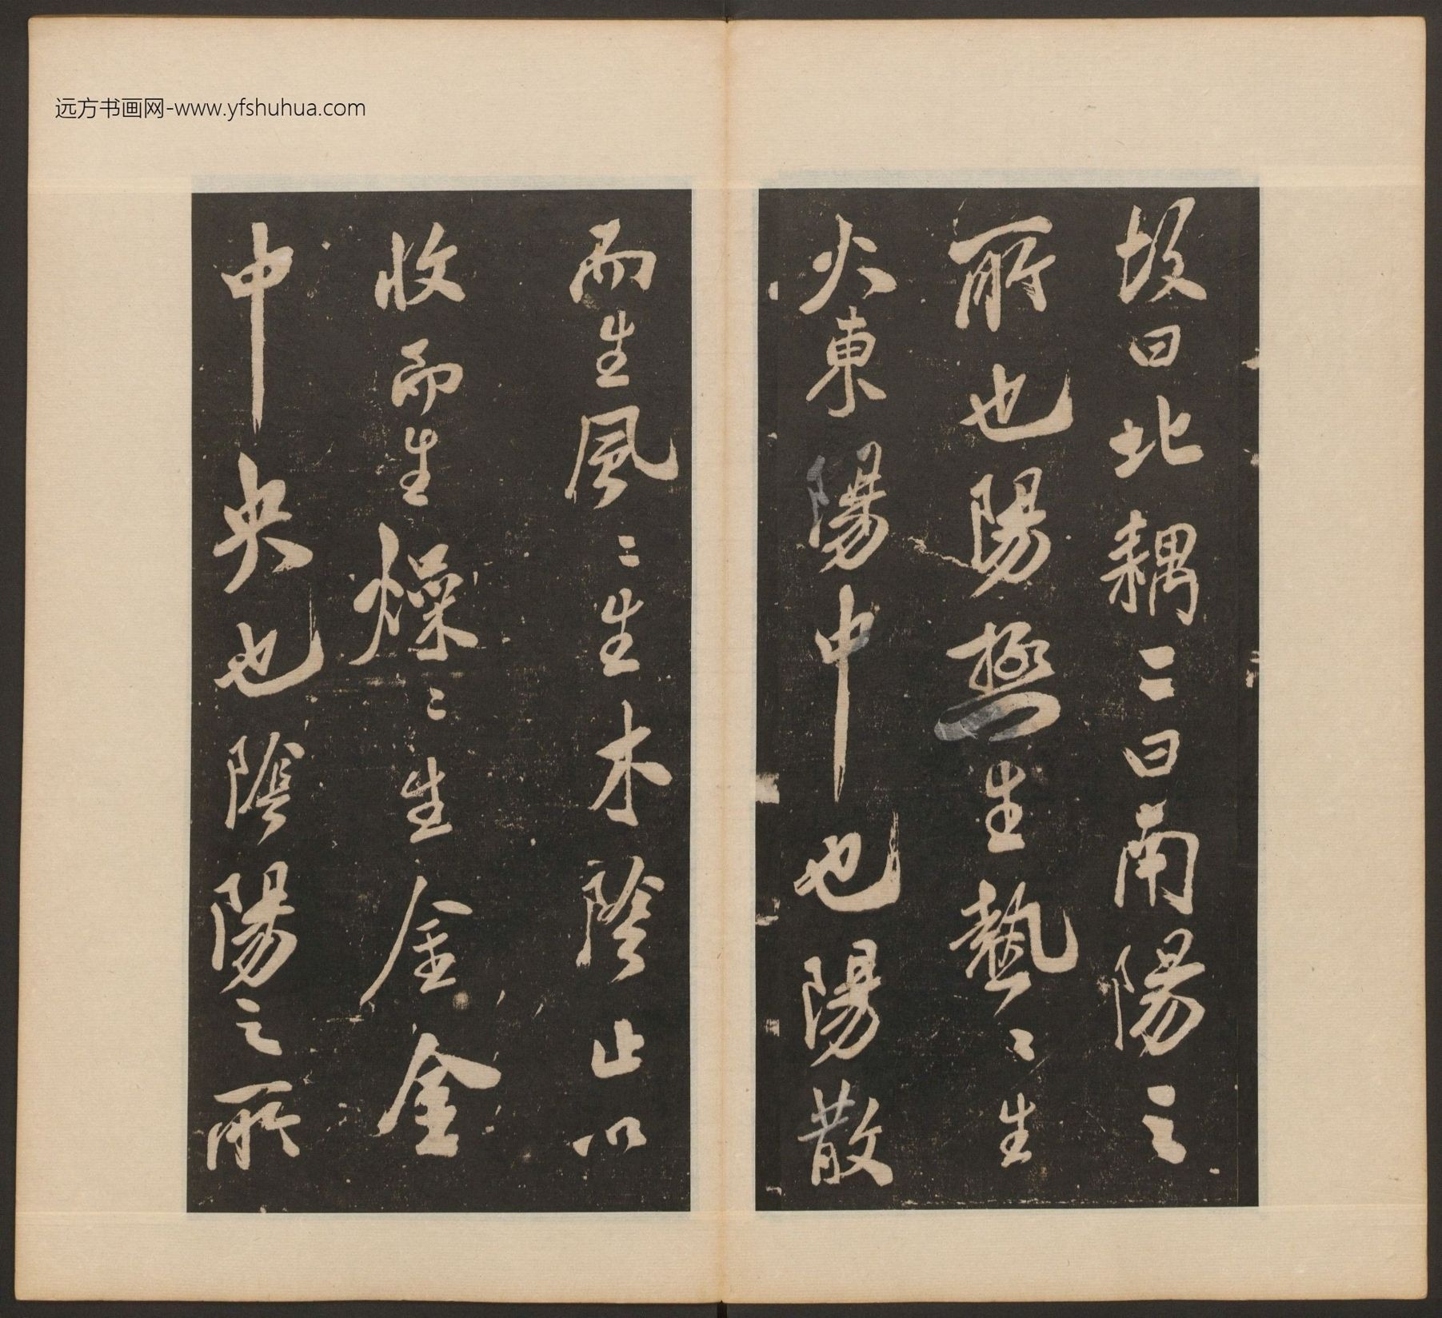 远方书画网-www.yfshuhua.com
故曰北耦二曰南陽之
所也陽極生熱〻生
火東陽中也陽散
而生風〻生木陰止以
收而生燥〻生金金
中央也陰陽之所